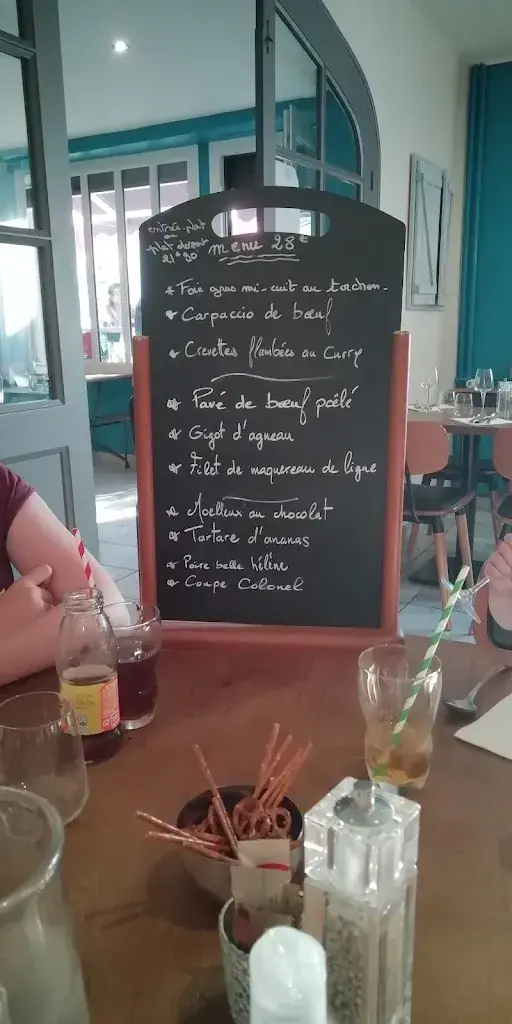 entrée plat
ou
plat dessert
21€90
menu 28€
* Foie gras mi-cuit au torchon.
* Carpaccio de bœuf
* Crevettes flambées au Curry
* Pavé de bœuf poêlé
* Gigot d'agneau
* Filet de maquereau de ligne
* Moelleux au chocolat
* Tartare d'ananas
* Poire belle hélène
* Coupe Colonel